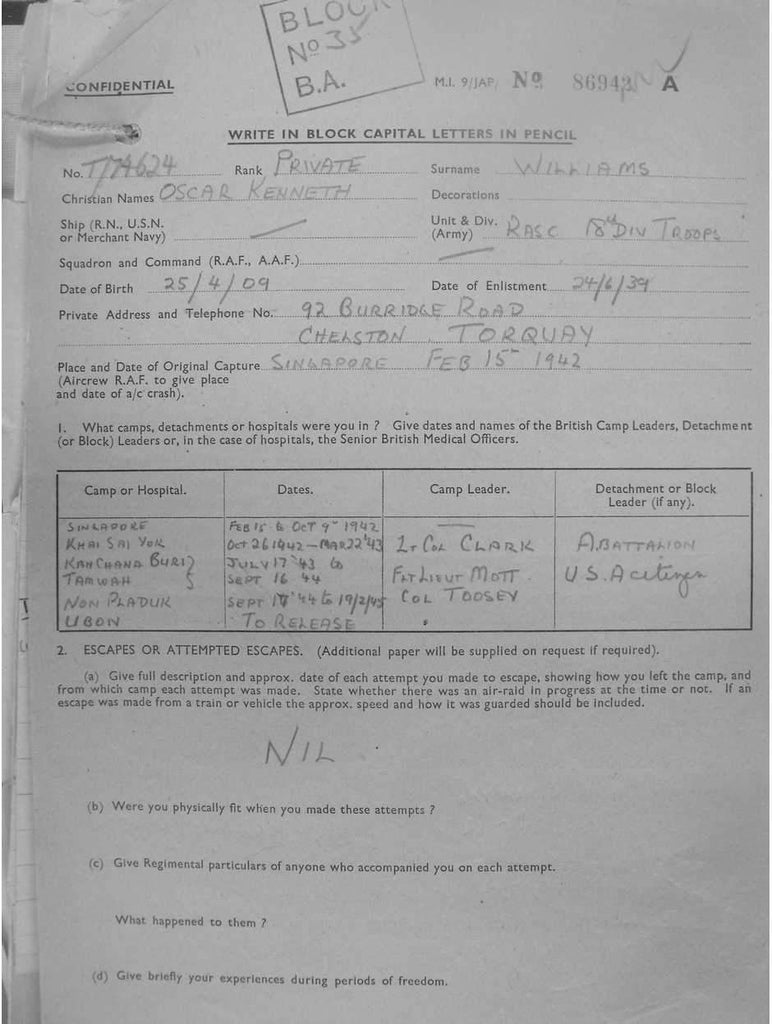 BLOCK
No 35
B.A.
CONFIDENTIAL
M.I. 9/JAP No 86942 A
WRITE IN BLOCK CAPITAL LETTERS IN PENCIL
No. T/74624 Rank PRIVATE Surname WILLIAMS
Christian Names OSCAR KENNETH Decorations
Ship (R.N., U.S.N. Unit & Div. RASC 18th DIV TROOPS
or Merchant Navy) (Army)
Squadron and Command (R.A.F., A.A.F.)
Date of Birth 25/4/09 Date of Enlistment 24/6/39
Private Address and Telephone No. 92 BURRIDGE ROAD
CHELSTON TORQUAY
Place and Date of Original Capture SINGAPORE FEB 15th 1942
(Aircrew R.A.F. to give place
and date of a/c crash).
1. What camps, detachments or hospitals were you in ? Give dates and names of the British Camp Leaders, Detachment
(or Block) Leaders or, in the case of hospitals, the Senior British Medical Officers.
Camp or Hospital. Dates. Camp Leader. Detachment or Block
Leader (if any).
SINGAPORE FEB 15 to OCT 9th 1942
KHAI SAI YOK OCT 26 1942 - MAR 22 '43 Lt COL CLARK A. BATTALION
KANCHANA BURI JULY 17 '43 to
TAMWAH SEPT 16 44 FLT LIEUT MOTT U.S.A
NON PLADUK SEPT '44 to 19/2/45 COL TOOSEY
UBON TO RELEASE
2. ESCAPES OR ATTEMPTED ESCAPES. (Additional paper will be supplied on request if required).
(a) Give full description and approx. date of each attempt you made to escape, showing how you left the camp, and
from which camp each attempt was made. State whether there was an air-raid in progress at the time or not. If an
escape was made from a train or vehicle the approx. speed and how it was guarded should be included.
NIL
(b) Were you physically fit when you made these attempts ?
(c) Give Regimental particulars of anyone who accompanied you on each attempt.
What happened to them ?
(d) Give briefly your experiences during periods of freedom.